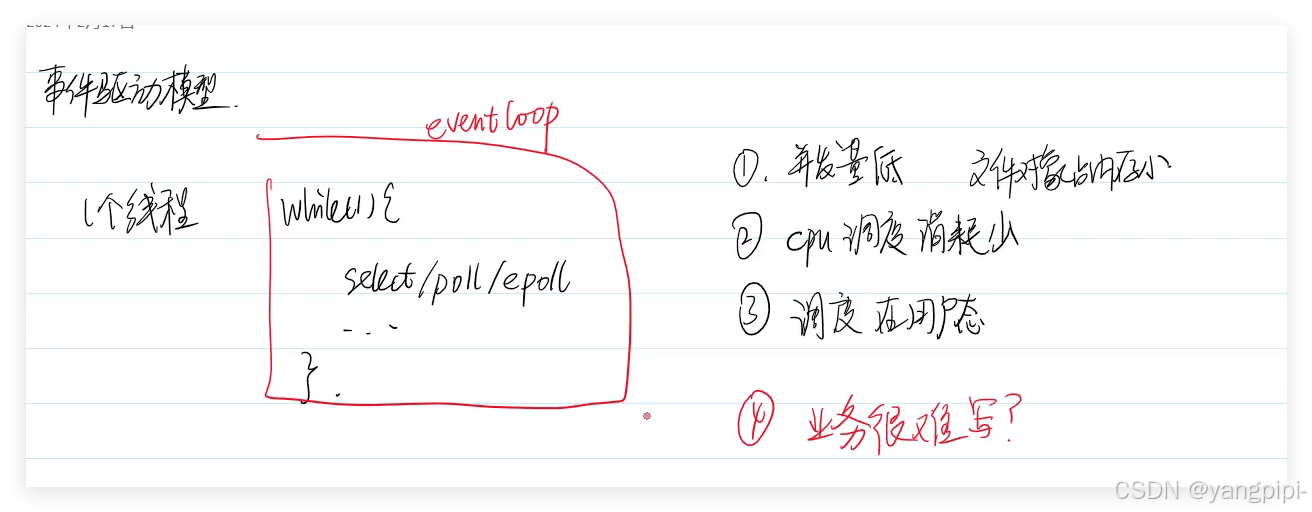 事件驱动模型.
eventloop
1个线程
while(1){
select/poll/epoll
...
}.
①. 并发量低 文件对象占内存小
② cpu 调度消耗少
③ 调度在用户态
④ 业务很难写?
CSDN @yangpipi-